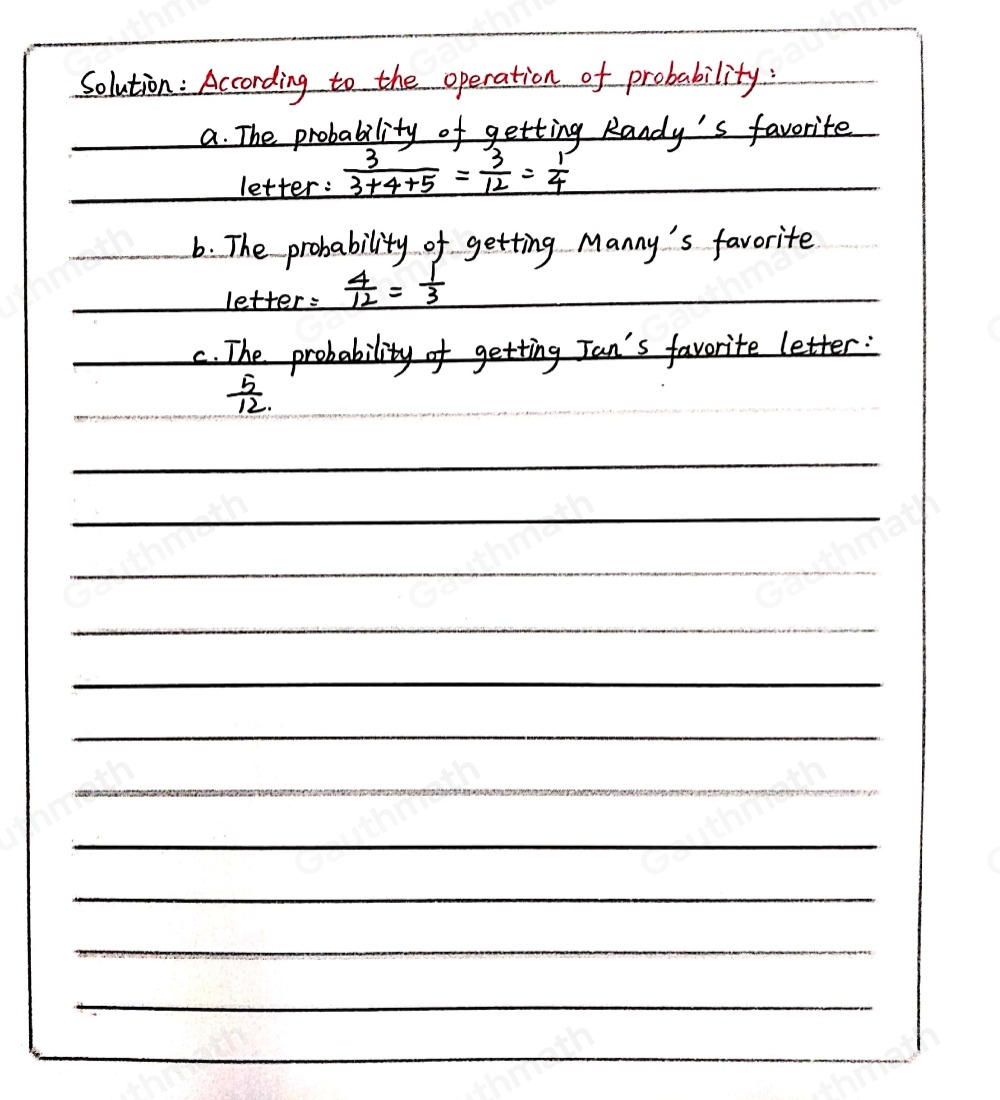 Solution: According to the operation of probability:
a. The probability of getting Randy's favorite
letter: 3/(3+4+5) = 3/12 = 1/4
b. The probability of getting Manny's favorite
letter: 4/12 = 1/3
c. The probability of getting Jan's favorite letter:
5/12.
Gauthmath